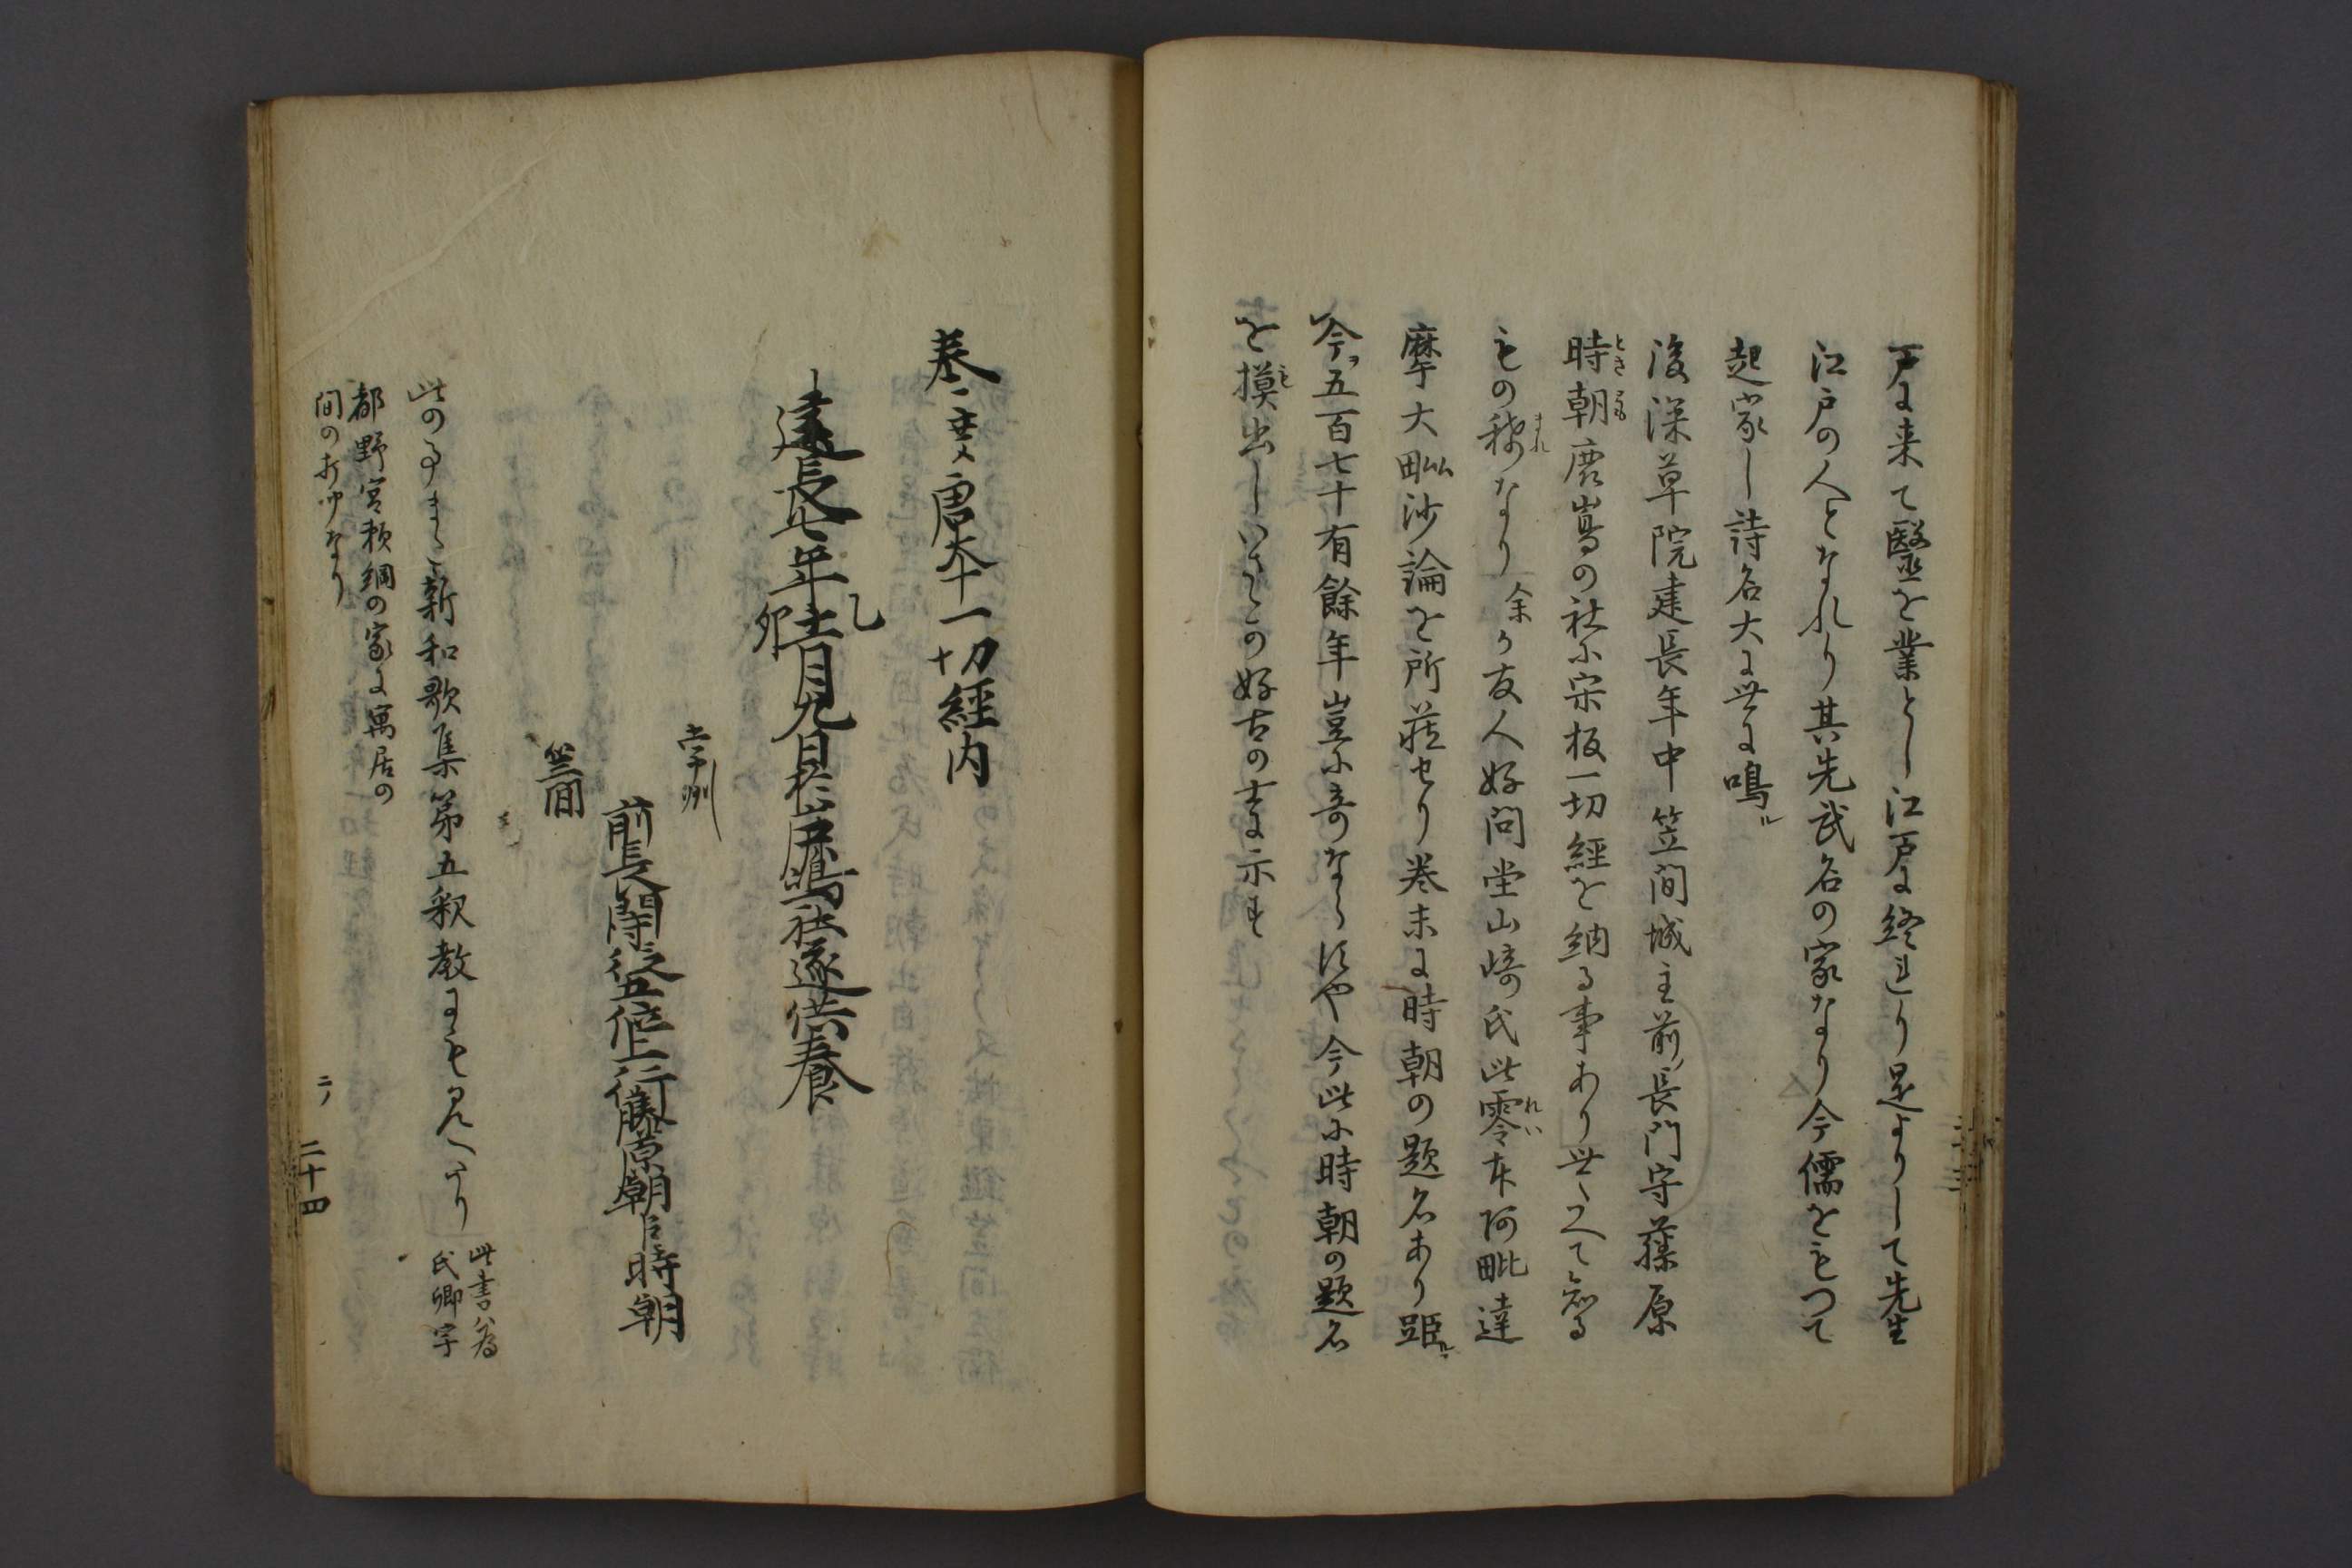 戸に来て醫を業とし江戸に終れり是よりして先生
江戸の人となれり其先武名の家なり今儒をもつて
起家し詩名大に世に鳴ル
後深草院建長年中笠間城主前ノ長門守藤原
時朝鹿嶌の社に宋板一切經を納る事あり世たえて知る
もの稀なり余か友人好問堂山﨑氏此零本阿毗達
摩大毗沙論を所蔵せり巻末に時朝の題名あり距ルヿ
今ヲ五百七十有餘年豈に奇ならすや今此に時朝の題名
を摸出しいさゝか好古の士に示す
奉渡唐本一切經内
建長七年乙卯十一月九日於鹿嶋社遂供養
常州
笠間
前長門守従五位上行藤原朝臣時朝
此の事また新和歌集第五釈教にも見へたり
此書ハ為
氏卿宇
都野宮頼綱の家に寓居の
間の打聞なり
二ノ 二十四